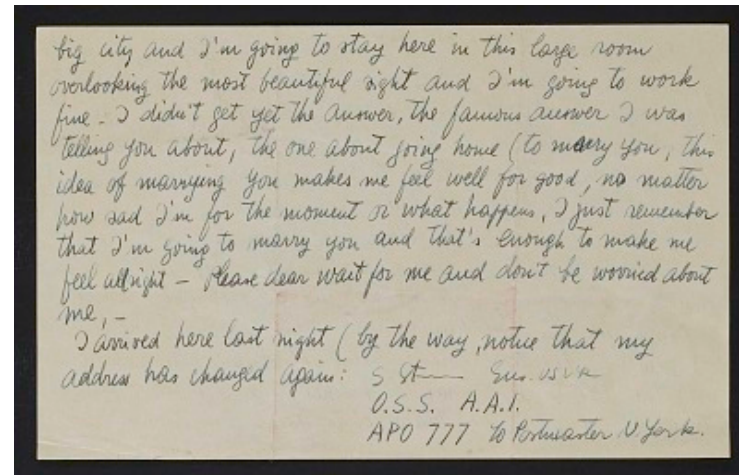 big city and I'm going to stay here in this large room
overlooking the most beautiful sight and I'm going to work
fine - I didn't get yet the answer, the famous answer I was
telling you about, the one about going home (to marry you, this
idea of marrying you makes me feel well for good, no matter
how sad I'm for the moment or what happens, I just remember
that I'm going to marry you and that's enough to make me
feel allright - Please dear wait for me and don't be worried about
me, -
I arrived here last night (by the way, notice that my
address has changed again: S
O.S.S. A.A.I.
APO 777 To Postmaster N. York.